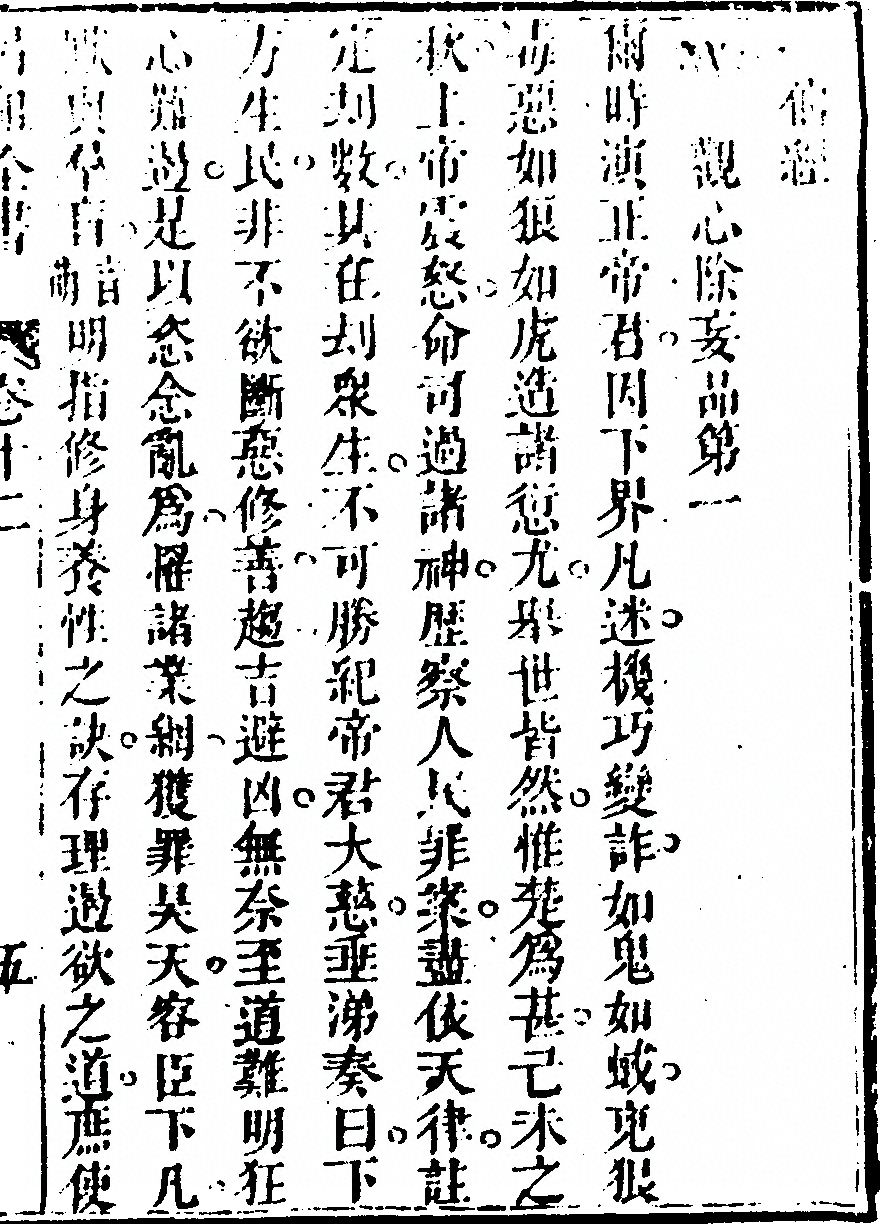 觀心除妄品第一
爾時演正帝君因下界凡迷機巧變詐如鬼如蜮兇狠
毒惡如狼如虎造諸愆尤舉世皆然惟楚為甚己未之
秋上帝震怒命司過諸神歷察人民罪業盡依天律註
定刦數其在刦眾生不可勝紀帝君大慈垂涕奏曰下
方生民非不欲斷惡修善趨吉避凶無奈至道難明狂
心難遏是以恣念亂為罹諸業網獲罪昊天容臣下凡
默與 明指修身養性之訣存理遏欲之道庶使
全書 卷十二 五